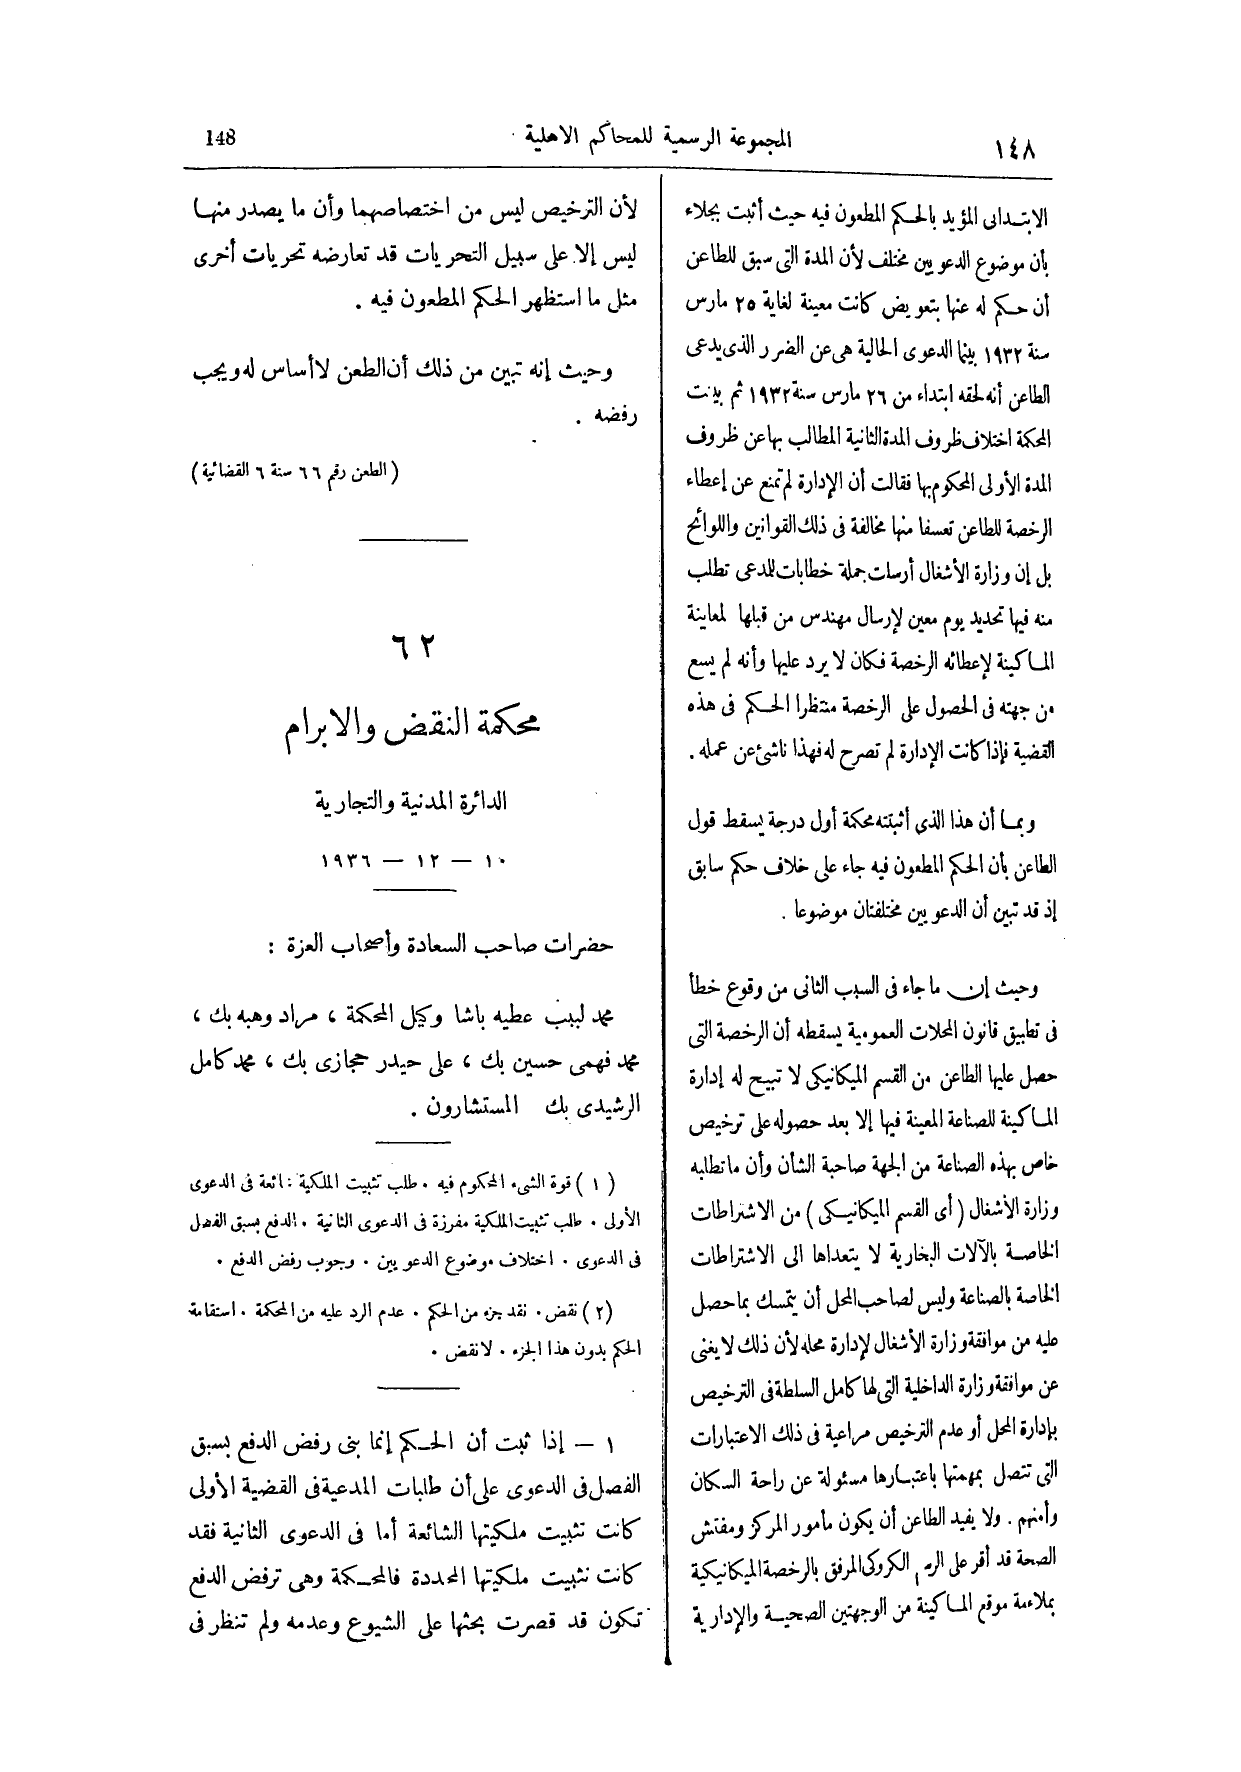 ١٤٨
المجموعة الرسمية للمحاكم الاهلية
148
الابتدائى المؤيد بالحكم المطعون فيه حيث أثبت بجلاء
بأن موضوع الدعويين مختلف لأن المدة التى سبق للطاعن
أن حكم له عنها بتعويض كانت معينة لغاية ٢٥ مارس
سنة ١٩٣٢ بينما الدعوى الحالية هى عن الضرر الذى يدعى
الطاعن أنه لحقه ابتداء من ٢٦ مارس سنة ١٩٣٢ ثم بينت
المحكمة اختلاف ظروف المدة الثانية المطالب بها عن ظروف
المدة الأولى المحكوم بها فقالت أن الإدارة لم تمنع عن إعطاء
الرخصة للطاعن تعسفا منها مخالفة فى ذلك القوانين واللوائح
بل إن وزارة الأشغال أرسلت جملة خطابات للمدعى تطلب
منه فيها تحديد يوم معين لإرسال مهندس من قبلها لمعاينة
الماكينة لإعطائه الرخصة فكان لا يرد عليها وأنه لم يسع
من جهته فى الحصول على الرخصة منتظرا الحكم فى هذه
القضية فإذا كانت الإدارة لم تصرح له فهذا ناشئ عن عمله .
وبما أن هذا الذى أثبتته محكمة أول درجة يسقط قول
الطاعن بأن الحكم المطعون فيه جاء على خلاف حكم سابق
إذ قد تبين أن الدعويين مختلفتان موضوعا .
وحيث إن ما جاء فى السبب الثانى من وقوع خطأ
فى تطبيق قانون المحلات العمومية يسقطه أن الرخصة التى
حصل عليها الطاعن من القسم الميكانيكى لا تبيح له إدارة
الماكينة للصناعة المعينة فيها إلا بعد حصوله على ترخيص
خاص بهذه الصناعة من الجهة صاحبة الشأن وأن ما تطلبه
وزارة الأشغال ( أى القسم الميكانيكى ) من الاشتراطات
الخاصة بالآلات البخارية لا يتعداها الى الاشتراطات
الخاصة بالصناعة وليس لصاحب المحل أن يتمسك بما حصل
عليه من موافقة وزارة الأشغال لإدارة محله لأن ذلك لا يغنى
عن موافقة وزارة الداخلية التى لها كامل السلطة فى الترخيص
بإدارة المحل أو عدم الترخيص مراعية فى ذلك الاعتبارات
التى تتصل بمهمتها باعتبارها مسئولة عن راحة السكان
وأمنهم . ولا يفيد الطاعن أن يكون مأمور المركز ومفتش
الصحة قد أقر على الرسم الكروكى المرفق بالرخصة الميكانيكية
بملاءمة موقع الماكينة من الوجهتين الصحية والإدارية
لأن الترخيص ليس من اختصاصهما وأن ما يصدر منها
ليس إلا على سبيل التحريات قد تعارضه تحريات أخرى
مثل ما استظهر الحكم المطعون فيه .
وحيث إنه تبين من ذلك أن الطعن لا أساس له ويجب
رفضه .
( الطعن رقم ٦٦ سنة ٦ القضائية )
٦٢
محكمة النقض والابرام
الدائرة المدنية والتجارية
١٠ — ١٢ — ١٩٣٦
حضرات صاحب السعادة وأصحاب العزة :
محمد لبيب عطيه باشا وكيل المحكمة ، مراد وهبه بك ،
محمد فهمى حسين بك ، على حيدر حجازى بك ، محمد كامل
الرشيدى بك المستشارون .
( ١ ) قوة الشىء المحكوم فيه . طلب تثبيت الملكية شائعة فى الدعوى
الأولى . طلب تثبيت الملكية مفرزة فى الدعوى الثانية . الدفع بسبق الفصل
فى الدعوى . اختلاف موضوع الدعويين . وجوب رفض الدفع .
( ٢ ) نقض . نقد جزء من الحكم . عدم الرد عليه من المحكمة . استقامة
الحكم بدون هذا الجزء . لا نقض .
١ — إذا ثبت أن الحكم إنما بنى رفض الدفع بسبق
الفصل فى الدعوى على أن طلبات المدعية فى القضية الأولى
كانت تثبيت ملكيتها الشائعة أما فى الدعوى الثانية فقد
كانت تثبيت ملكيتها المحددة فالمحكمة وهى ترفض الدفع
تكون قد قصرت بحثها على الشيوع وعدمه ولم تنظر فى